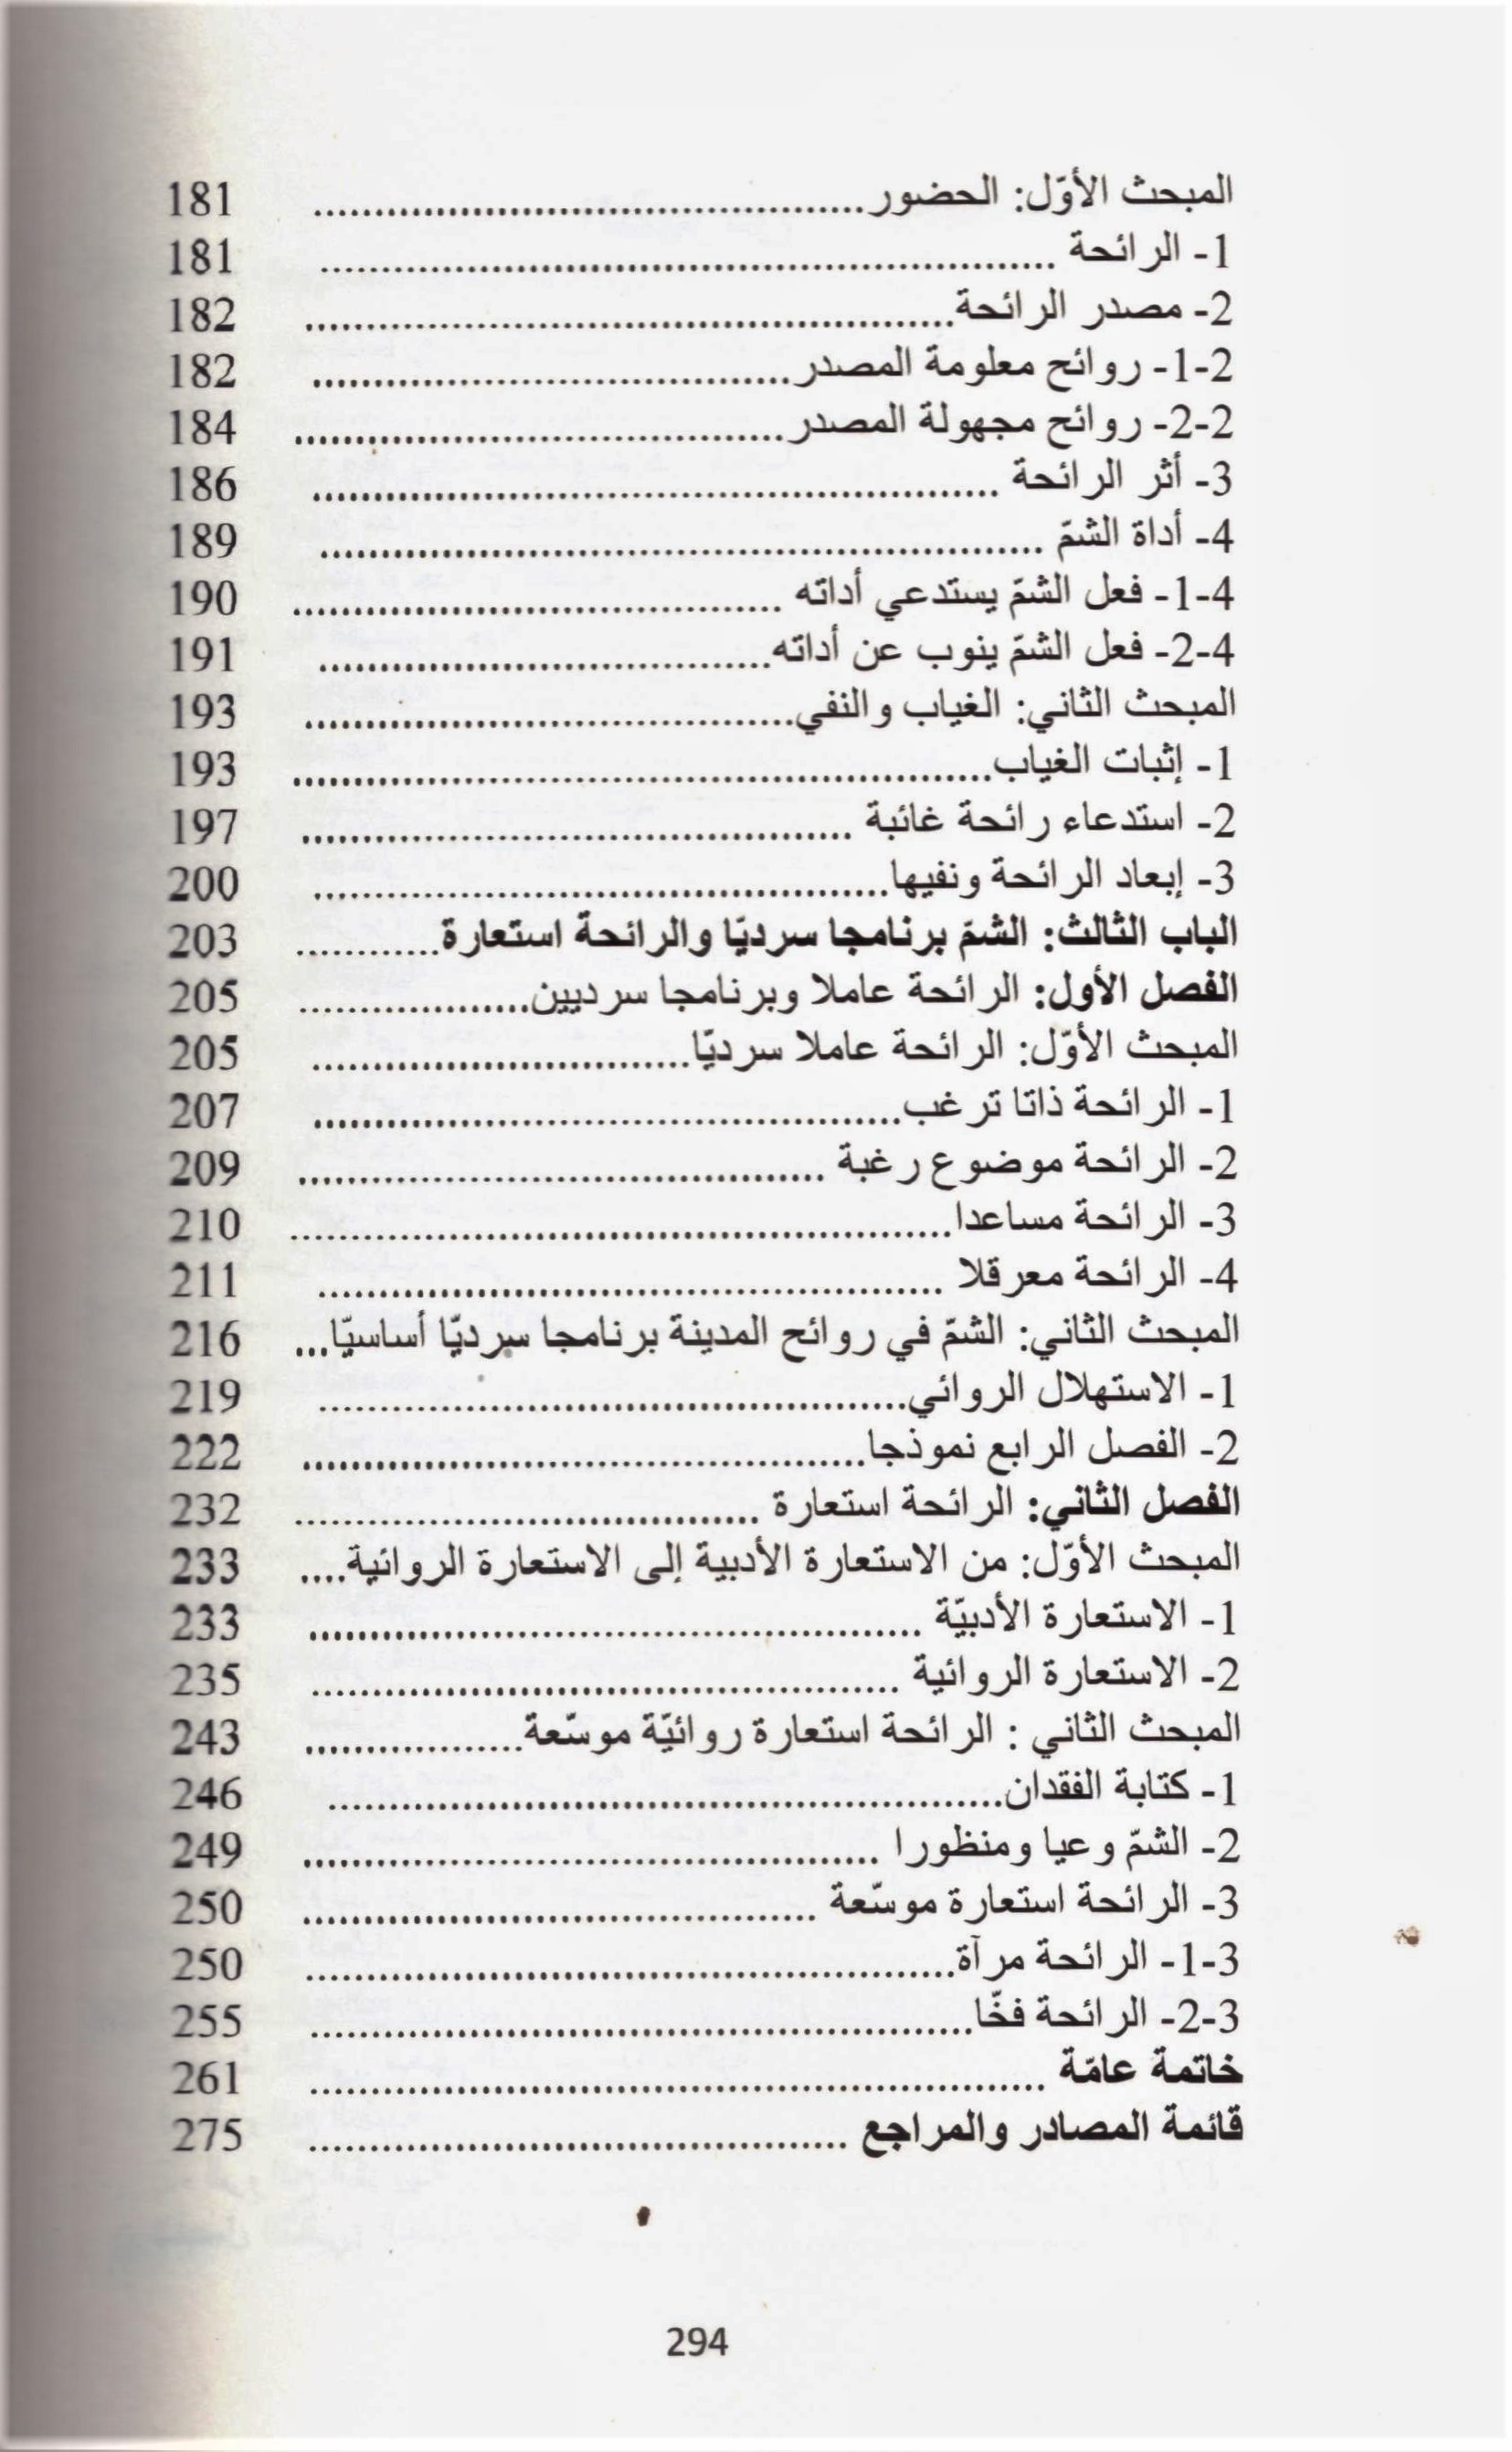 المبحث الأوّل: الحضور............................................. 181
1- الرائحة ............................................................ 181
2- مصدر الرائحة..................................................... 182
2-1- روائح معلومة المصدر....................................... 182
2-2- روائح مجهولة المصدر........................................ 184
3- أثر الرائحة ........................................................ 186
4- أداة الشمّ ........................................................... 189
4-1- فعل الشمّ يستدعي أداته ........................................ 190
4-2- فعل الشمّ ينوب عن أداته..................................... 191
المبحث الثاني: الغياب والنفي........................................ 193
1- إثبات الغياب......................................................... 193
2- استدعاء رائحة غائبة ............................................. 197
3- إبعاد الرائحة ونفيها............................................... 200
الباب الثالث: الشمّ برنامجا سرديّا والرائحة استعارة............ 203
الفصل الأول: الرائحة عاملا وبرنامجا سرديين................... 205
المبحث الأوّل: الرائحة عاملا سرديّا............................... 205
1- الرائحة ذاتا ترغب................................................ 207
2- الرائحة موضوع رغبة ........................................... 209
3- الرائحة مساعدا...................................................... 210
4- الرائحة معرقلا ................................................... 211
المبحث الثاني: الشمّ في روائح المدينة برنامجا سرديّا أساسيّا... 216
1- الاستهلال الروائي................................................ 219
2- الفصل الرابع نموذجا.............................................. 222
الفصل الثاني: الرائحة استعارة ...................................... 232
المبحث الأوّل: من الاستعارة الأدبية إلى الاستعارة الروائية.... 233
1- الاستعارة الأدبيّة .................................................. 233
2- الاستعارة الروائية ................................................ 235
المبحث الثاني : الرائحة استعارة روائيّة موسّعة.................. 243
1- كتابة الفقدان....................................................... 246
2- الشمّ وعيا ومنظورا ............................................... 249
3- الرائحة استعارة موسّعة .......................................... 250
3-1- الرائحة مرآة..................................................... 250
3-2- الرائحة فخّا...................................................... 255
خاتمة عامّة ............................................................ 261
قائمة المصادر والمراجع ............................................ 275
294